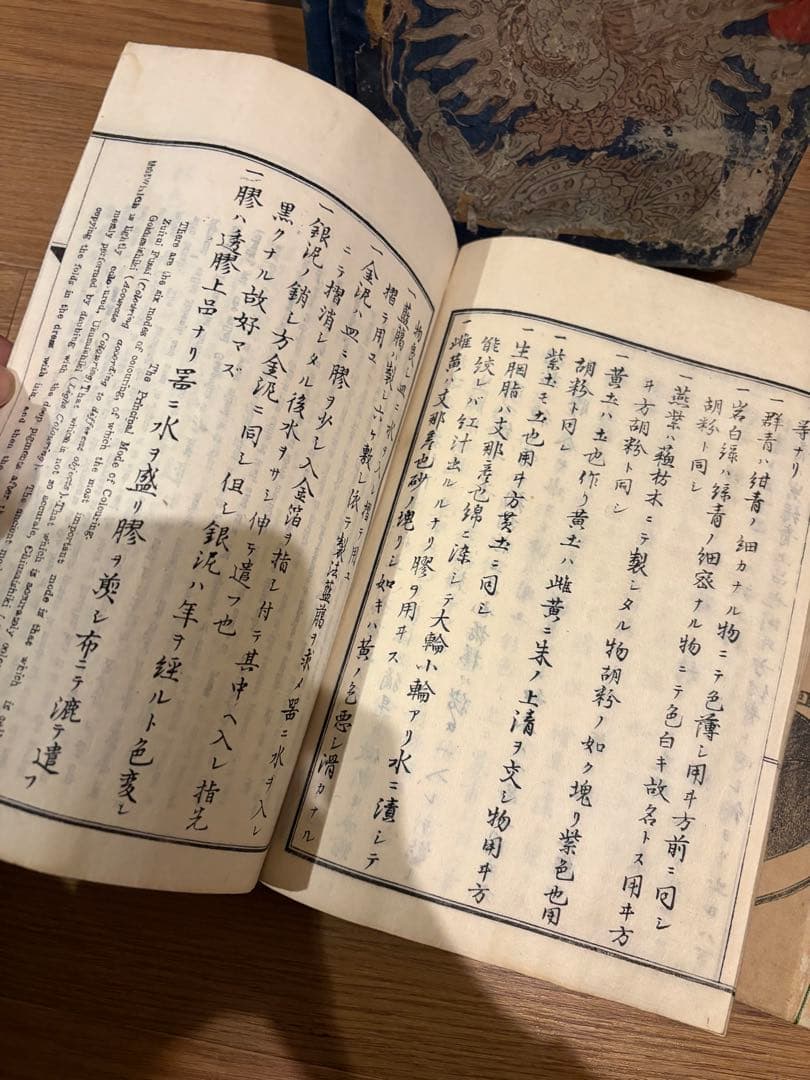 等ナリ
一群青ハ紺青ノ細カナル物ニテ色薄シ用ヰ方前ニ同シ
一岩白緑ハ緑青ノ細密ナル物ニテ色白キ故名トス用ヰ方
胡粉ト同シ
一燕紫ハ蘓枋木ニテ製シタル物胡粉ノ如ク塊リ紫色也用
ヰ方胡粉ト同シ
一黄土ハ土也作リ黄土ハ雌黄ニ朱ノ上清ヲ交シ物用ヰ方
胡粉ト同シ
一紫土モ土也用ヰ方黄土ニ同シ
一生胭脂ハ支那産也綿ニ染シテ大輪小輪アリ水ニ漬シテ
能絞レバ紅汁出ルナリ膠ヲ用ヰス
一雌黄ハ支那産也砂ノ塊リシ如キハ黄ノ色悪シ滑カナル
物良シ皿ニ水ヲ入レ摺テ用ユ
一藍蝋ハ製シ六ケ敷シ依テ製法藍蝋ヲ求メ器ニ水ヲ入レ
摺テ用ユ
一金泥ハ皿ニ膠ヲ少シ入金箔ヲ指シ付テ其中ヘ入レ指先
ニテ摺消シタル後水ヲサシ伸テ遣フ也
一銀泥ノ銷シ方金泥ニ同シ但シ銀泥ハ年ヲ經ルト色変シ
黒クナル故好マズ
一膠ハ透膠上品ナリ器ニ水ヲ盛リ膠ヲ煎シ布ニテ漉テ遣フ
The Principal Mode of Colouring.
There are the six modes of colouring, of which the most important
Zuirui Fusai (Colouring according to different objects). That which is
Gokusaishiki (Accurate Colouring) That which mode is these which is
mently performed by daubing with the deep pigments after the
copying the folds in the dress with ink and then the